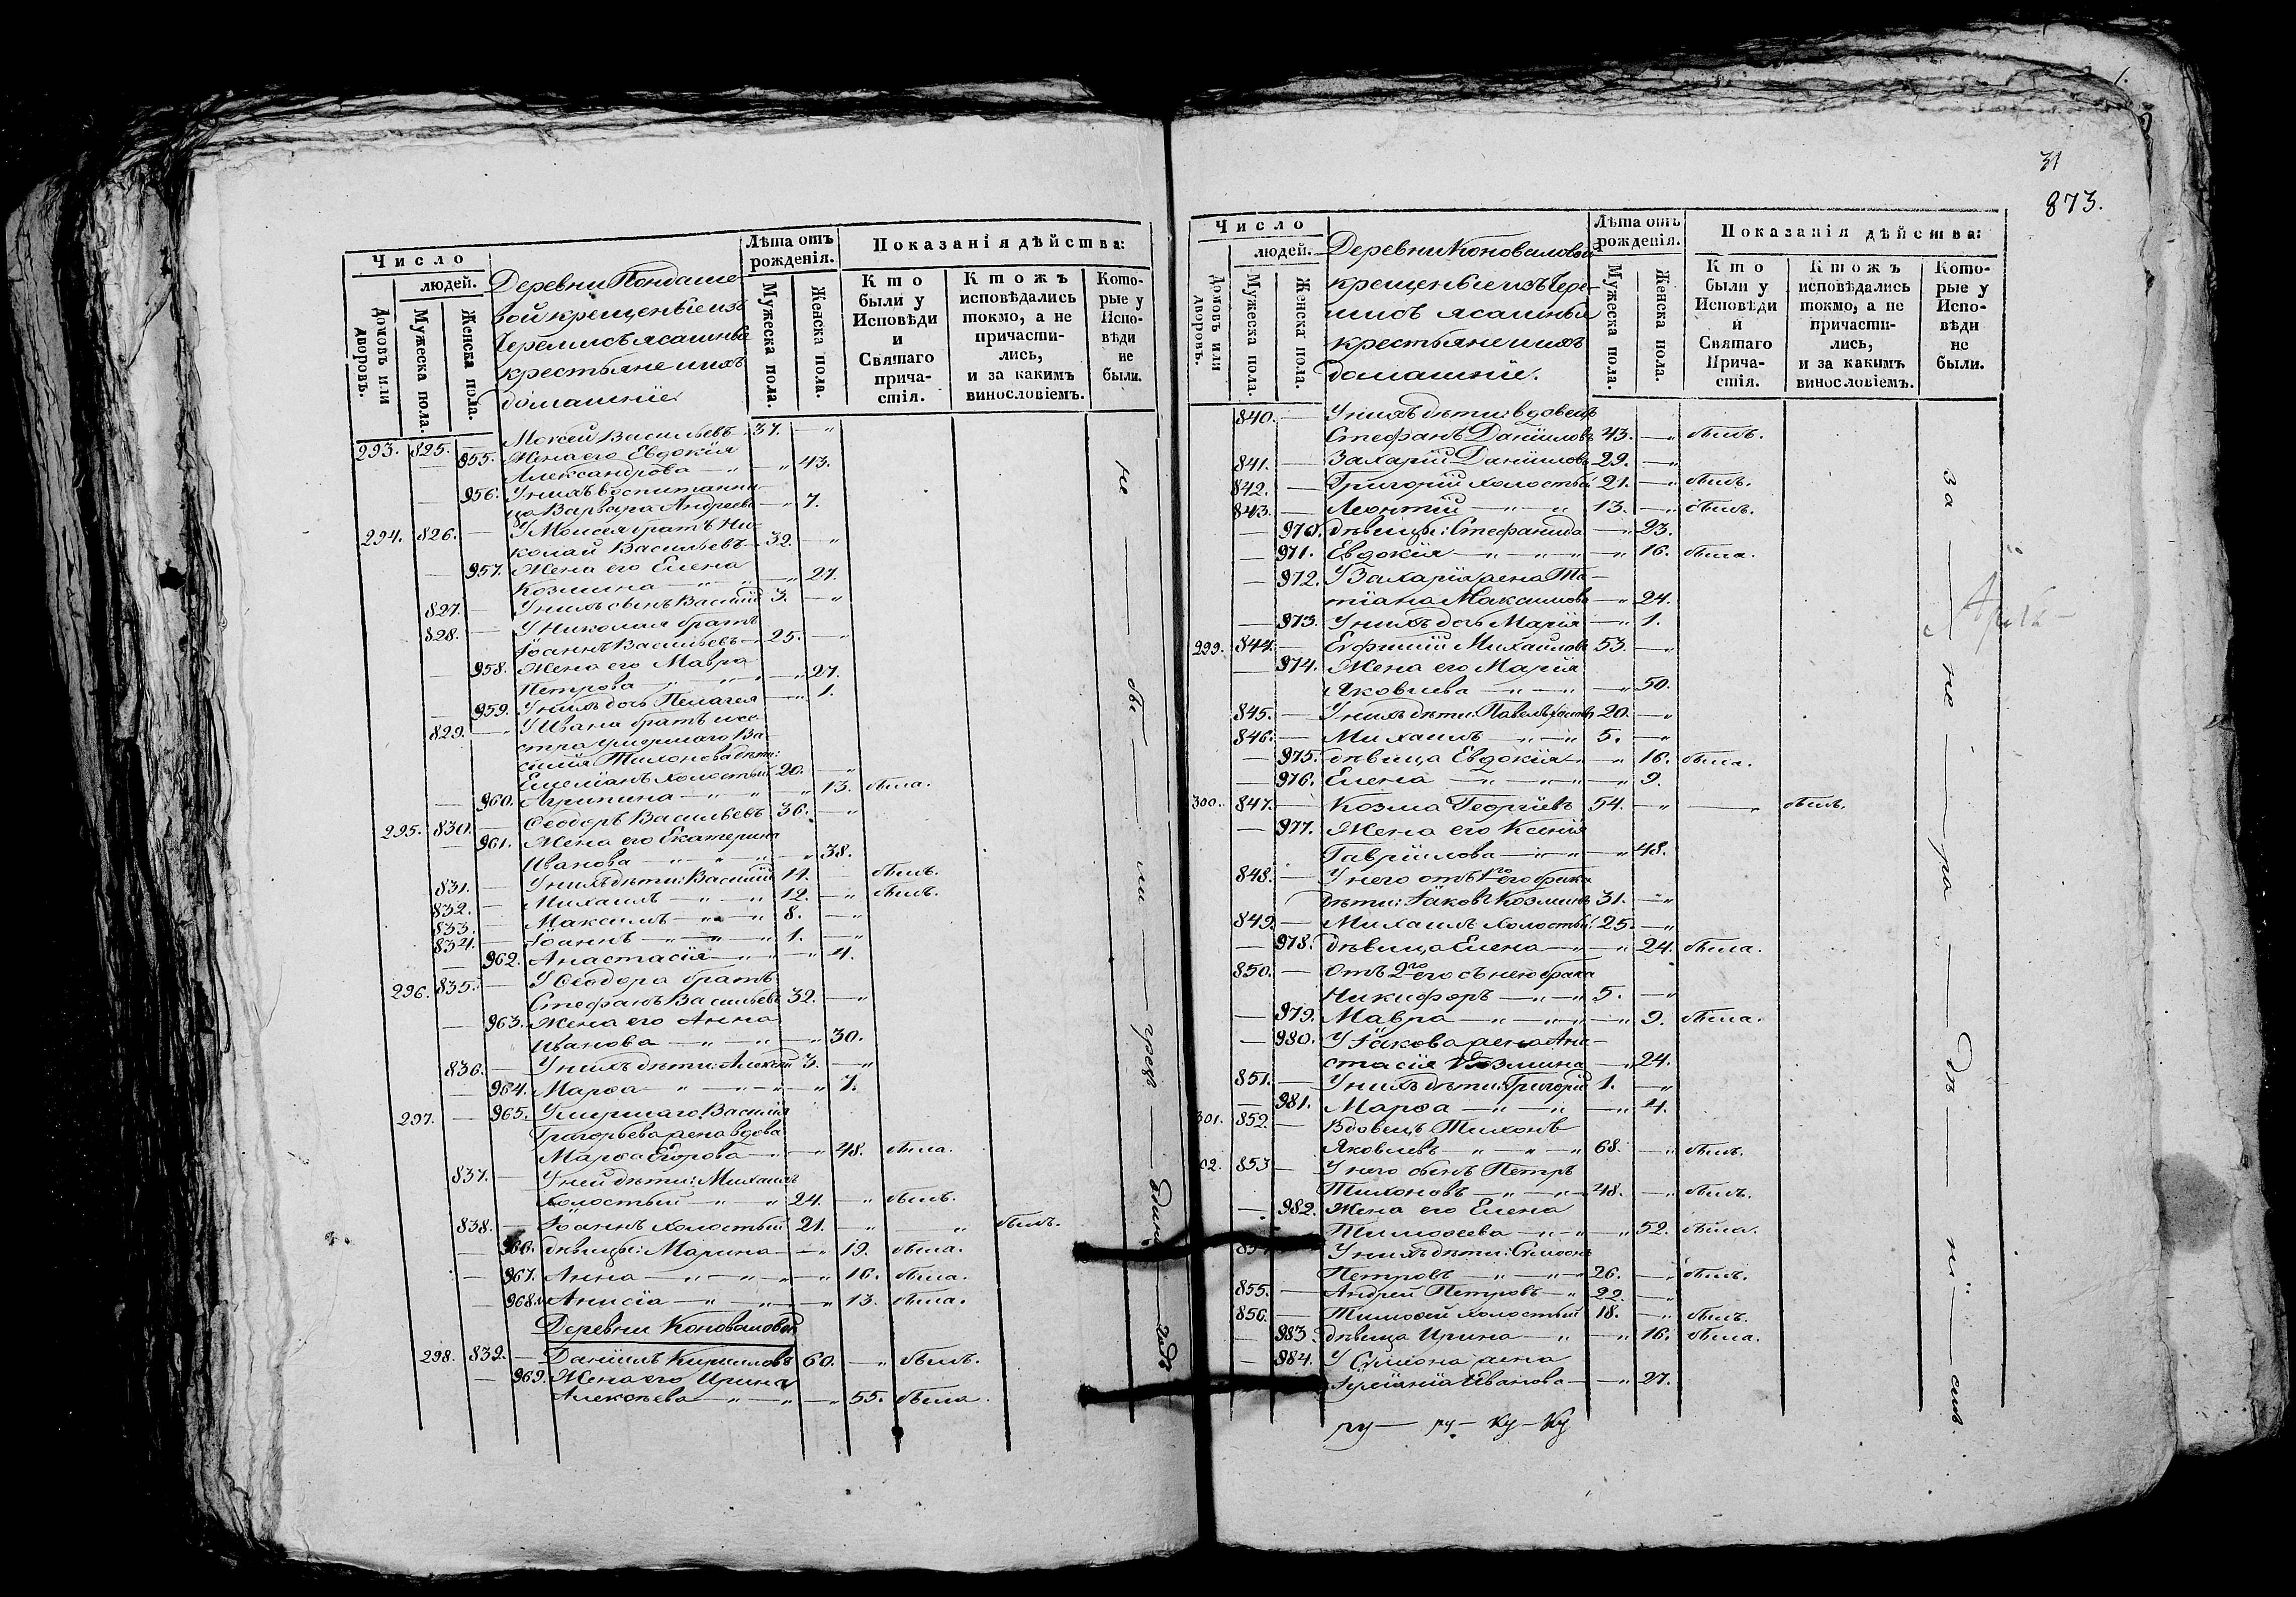 Число
людей.
Домовъ или дворовъ.
Мужеска пола.
Женска пола.
Деревни Пондаше-
вой крещеныеизъ
Черемисъ ясашныя
крестьяне и ихъ
домашніе.
Лѣта отъ рожденія.
Мужеска пола.
Женска пола.
Показанія дѣйства:
Кто были у Исповѣди и Святаго причастія.
Ктожъ исповѣдались токмо, а не причастились, и за какимъ винословіемъ.
Которые у Исповѣди не были.
293. 825. — Мокей Васильевъ 37. — „
— 955. Жена его Евдокія
Александрова — „ — „ 43.
— 956. У нихъ воспитанни-
ца Варвара Андреева — „ 7.
294. 826. — У Мокея братъ Ни-
колай Васильевъ — 32. — „
— 957. Жена его Елена
Козмина — „ — „ 27.
827. — У нихъ сынъ Василій 3. — „
828. — У Николая братъ
Іоаннъ Васильевъ — 25. — „
— 958. Жена его Мавра
Петрова — „ — „ 27.
— 959. У нихъ дочь Пелагея — „ 1.
829. — У Ивана братъ и се-
стра умершаго Ва-
силія Тихонова дѣти:
Емеліанъ холостый 20. — „
— 960. Агрипина — „ — „ 13. была.
295. 830. — Ѳеодоръ Васильевъ 36. — „
— 961. Жена его Екатерина
Иванова — „ — „ — „ 38.
831. — У нихъ дѣти: Василій 14. былъ.
832. — Михаилъ — „ — „ 12. — „ былъ.
833. — Максимъ — „ — „ 8. — „
834. — Іоаннъ — „ — „ 1. — „
— 962. Анастасія — „ — „ 4.
296. 835. — У Ѳеодора братъ
Стефанъ Васильевъ 32. — „
— 963. Жена его Анна
Иванова — „ — „ — „ 30.
836. — У нихъ дѣти: Алексѣй 3. — „
— 964. Марѳа — „ — „ — „ 7.
297. — 965. Умершаго Василія
Григорьева жена вдова
Марѳа Егорова — „ — „ 48. была.
837. — У ней дѣти: Михаилъ
холостый — „ — „ 24. — „ былъ.
838. — Іоаннъ холостый 21. — „ „ былъ.
— 966. дѣвицы: Марина — „ 19. была.
— 967. Анна — „ — „ — „ 16. была.
— 968. Анисіа — „ — „ — „ 13. была.
Деревни Коноваловой
298. 839. — Даніилъ Кириловъ 60. — „ былъ.
— 969. Жена его Ирина
Алексѣева — „ — „ — „ 55. была.
не — бы — ли — чрезъ — единъ — годъ
31
873.
Число
людей.
Домовъ или дворовъ.
Мужеска пола.
Женска пола.
Деревни Коноваловой
крещеные изъ Чере-
мисъ ясашныя
крестьяне и ихъ
домашніе.
Лѣта отъ рожденія.
Мужеска пола.
Женска пола.
Показанія дѣйства:
Кто были у Исповѣди и Святаго Причастія.
Ктожъ исповѣдались токмо, а не причастились, и за какимъ винословіемъ.
Которые у Исповѣди не были.
840. — У нихъ дѣти: вдовецъ
Стефанъ Даніиловъ 43. — „ былъ.
841. — Захарій Даніиловъ 29. — „
842. — Григорій холостый 21. — „ былъ.
843. — Леонтій — „ — „ 13. — „ былъ.
— 970. дѣвицы: Стефанида — „ 23.
— 971. Евдокія — „ — „ — „ 16. была.
— 972. У Захарія жена Та-
тіана Максимова — „ 24.
— 973. У нихъ дочь Марія — „ 1.
299. 844. — Ефимій Михаиловъ 53. — „
— 974. Жена его Марія
Яковлева — „ — „ — „ 50.
845. — У нихъ дѣти: Павелъ холост 20. — „
846. — Михаилъ — „ — „ 5. — „
— 975. дѣвица Евдокія — „ — „ 16. была.
— 976. Елена — „ — „ — „ 9.
300. 847. — Козма Георгіевъ 54. — „ — „ былъ.
— 977. Жена его Ксенія
Гавріилова — „ — „ — „ 48.
848. — У него отъ 1го его брака
дѣти: Іаковъ Козминъ 31. — „
849. — Михаилъ холостый 25. — „
— 978. дѣвица Елена — „ — „ 24. была.
850. — Отъ 2го его съ нею брака
Никифоръ — „ — „ 5. — „
— 979. Мавра — „ — „ — „ 9. была.
— 980. У Іакова жена Ана-
стасія Козмина — „ 24.
851. — У нихъ дѣти: Григорій 1. — „
— 981. Марѳа — „ — „ — „ 4.
301. 852. — Вдовецъ Тихонъ
Яковлевъ — „ — „ — „ 68. — „ былъ.
02. 853 — У него сынъ Петръ
Тихоновъ — „ — „ 48. — „ былъ.
— 982. Жена его Елена
Тимоѳеева — „ — „ — „ 52. была.
У нихъ дѣти: Симеонъ
Петровъ — „ — „ 26. — „ былъ.
855. — Андрей Петровъ — „ 22. — „
856. — Тимоѳей холостый 18. — „ былъ.
— 983 дѣвица Ирина — „ — „ 16. была.
— 984. У Симіона жена
Іуліанія Иванова — „ 27.
за — не — ра — дѣ — ні — емъ.
ру — ру — ку — ку